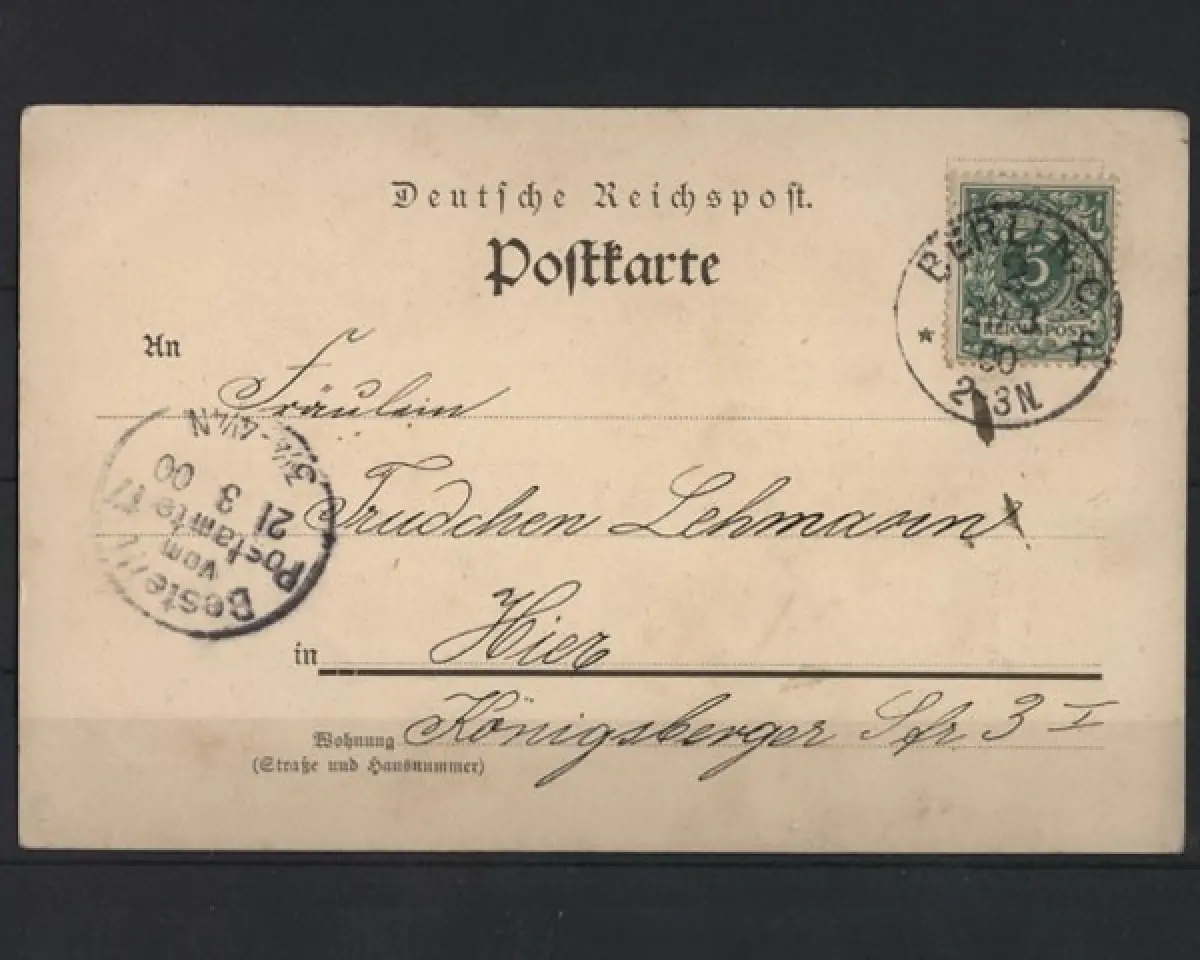 Deutsche Reichspost.
Postkarte
BERLIN, C
5
REICHSPOST
21
3
00
2-3N.
An Fräulein
Trudchen Lehmann
in Hier
Wohnung Königsberger Str 3 I
(Straße und Hausnummer)
Bestellt
vom
Postamte 17
21 3 00
3½-4¼ N